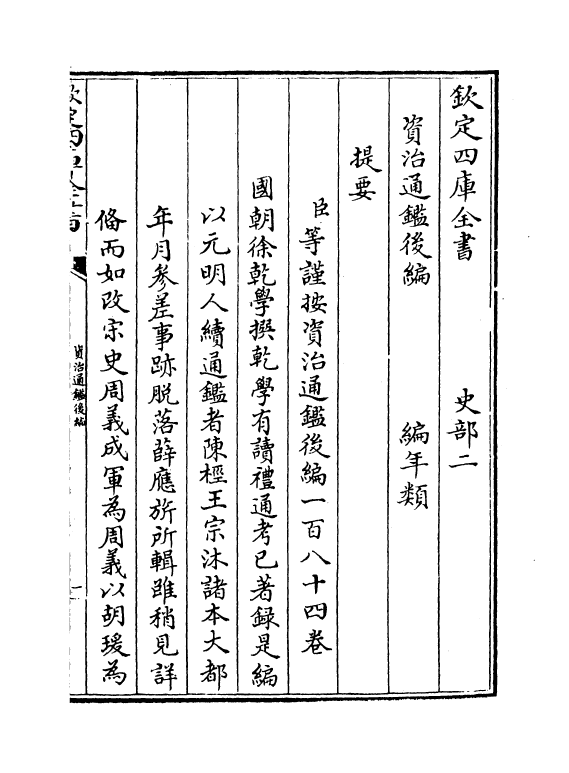 欽定四庫全書　史部二
資治通鑑後編　編年類
提要
臣等謹按資治通鑑後編一百八十四卷
國朝徐乾學撰乾學有讀禮通考已著録是編
以元明人續通鑑者陳桱王宗沐諸本大都
年月參差事跡脱落薛應旂所輯雖稍見詳
備而如改宋史周義成軍為周義以胡瑗為
欽定四庫全書
資治通鑑後編
一